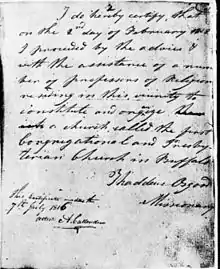 I do hereby certify, that
on the 2nd day of February 1812
I proceeded by the advice &
with the assistance of a num
ber of professors of Religion
residing in this vicinity to
constitute and organize
into a church called the first
congregational and Presby
terian Church in Buffalo
Thaddeus Osgood
Missionary
This certificate
7th July 1816
A. Callender